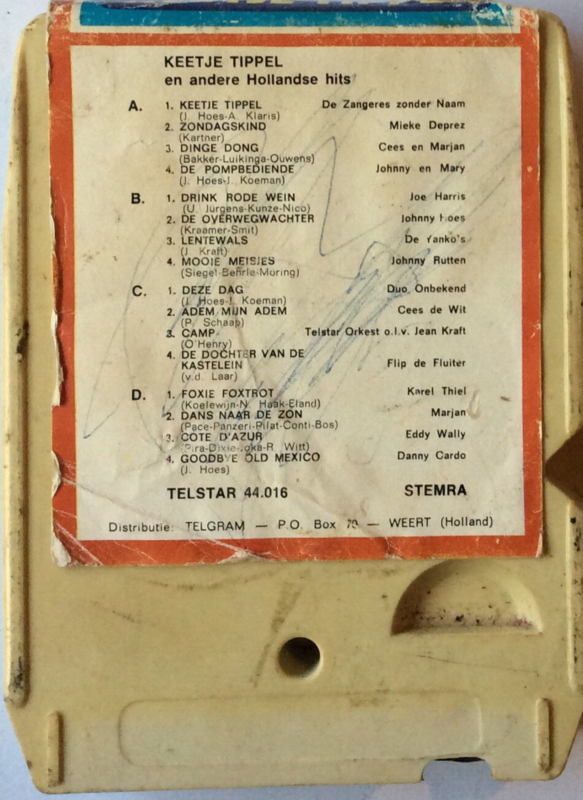 KEETJE TIPPEL
en andere Hollandse hits
A. 1. KEETJE TIPPEL De Zangeres zonder Naam
(J. Hoes-A. Klaris)
2. ZONDAGSKIND Mieke Deprez
(Kartner)
3. DINGE DONG Cees en Marjan
(Bakker-Luikinga-Ouwens)
4. DE POMPBEDIENDE Johnny en Mary
(J. Hoes-J. Koeman)
B. 1. DRINK RODE WEIN Joe Harris
(U. Jürgens-Kunze-Nico)
2. DE OVERWEGWACHTER Johnny Hoes
(Kraamer-Smit)
3. LENTEWALS De Yanko's
(J. Kraft)
4. MOOIE MEISJES Johnny Rutten
(Siegel-Behrle-Moring)
C. 1. DEZE DAG Duo Onbekend
(J. Hoes-J. Koeman)
2. ADEM MIJN ADEM Cees de Wit
(P. Schaap)
3. CAMP Telstar Orkest o.l.v. Jean Kraft
(O'Henry)
4. DE DOCHTER VAN DE
KASTELEIN Flip de Fluiter
(v.d. Laar)
D. 1. FOXIE FOXTROT Karel Thiel
(Koelewijn-N. Haak-Eland)
2. DANS NAAR DE ZON Marjan
(Pace-Panzeri-Pilat-Conti-Bos)
3. COTE D'AZUR Eddy Wally
Witt)
4. GOODBYE OLD MEXICO Danny Cardo
(J. Hoes)
TELSTAR 44.016 STEMRA
Distributie: TELGRAM — P.O. Box — WEERT (Holland)